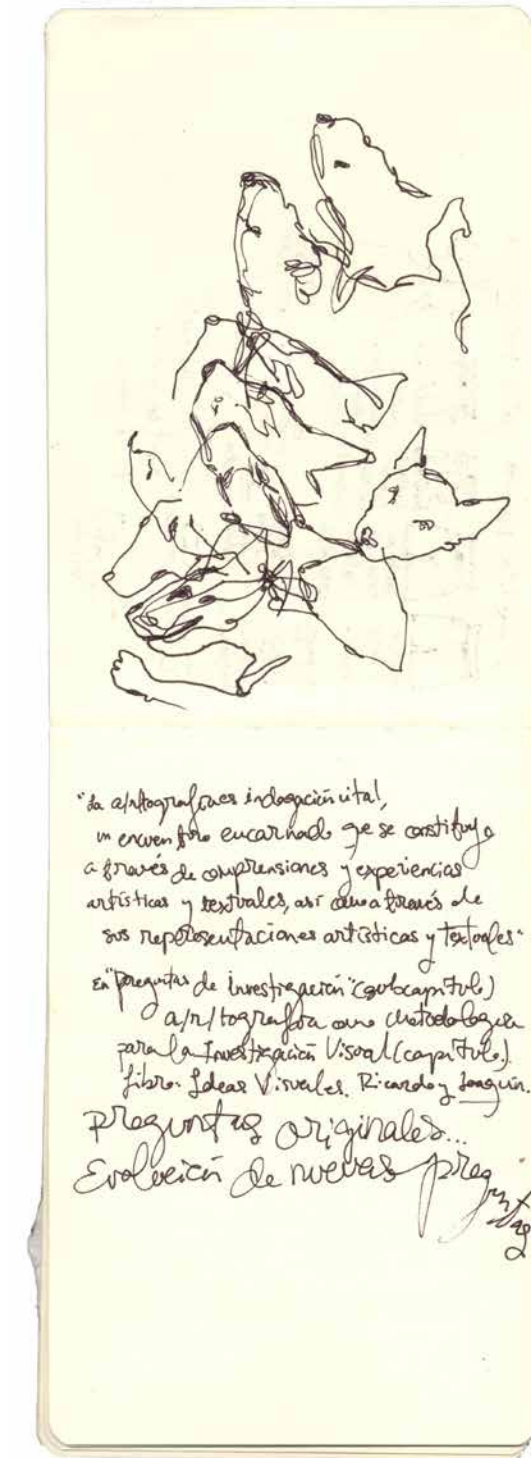 "La a/r/tografía es indagación vital,
un encuentro encarnado que se constituye
a través de comprensiones y experiencias
artísticas y textuales, así como a través de
sus representaciones artísticas y textuales"
En "preguntas de investigación" (subcapítulo)
a/r/tografía como Metodología
para la Investigación Visual (capítulo).
Libro: Ideas Visuales. Ricardo y Joaquín.
Preguntas originales...
Evolución de nuevas preguntas